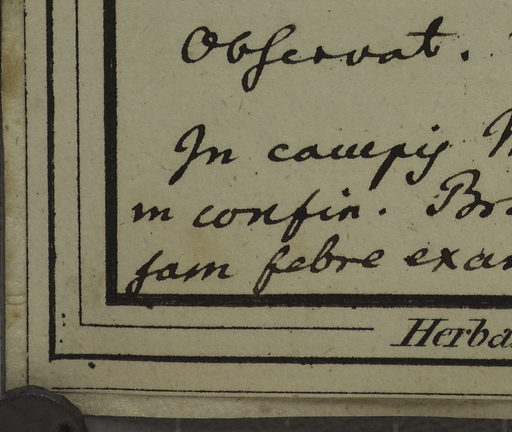 Observat.
In campis
in confin. Bra
jam febre exan
Herba